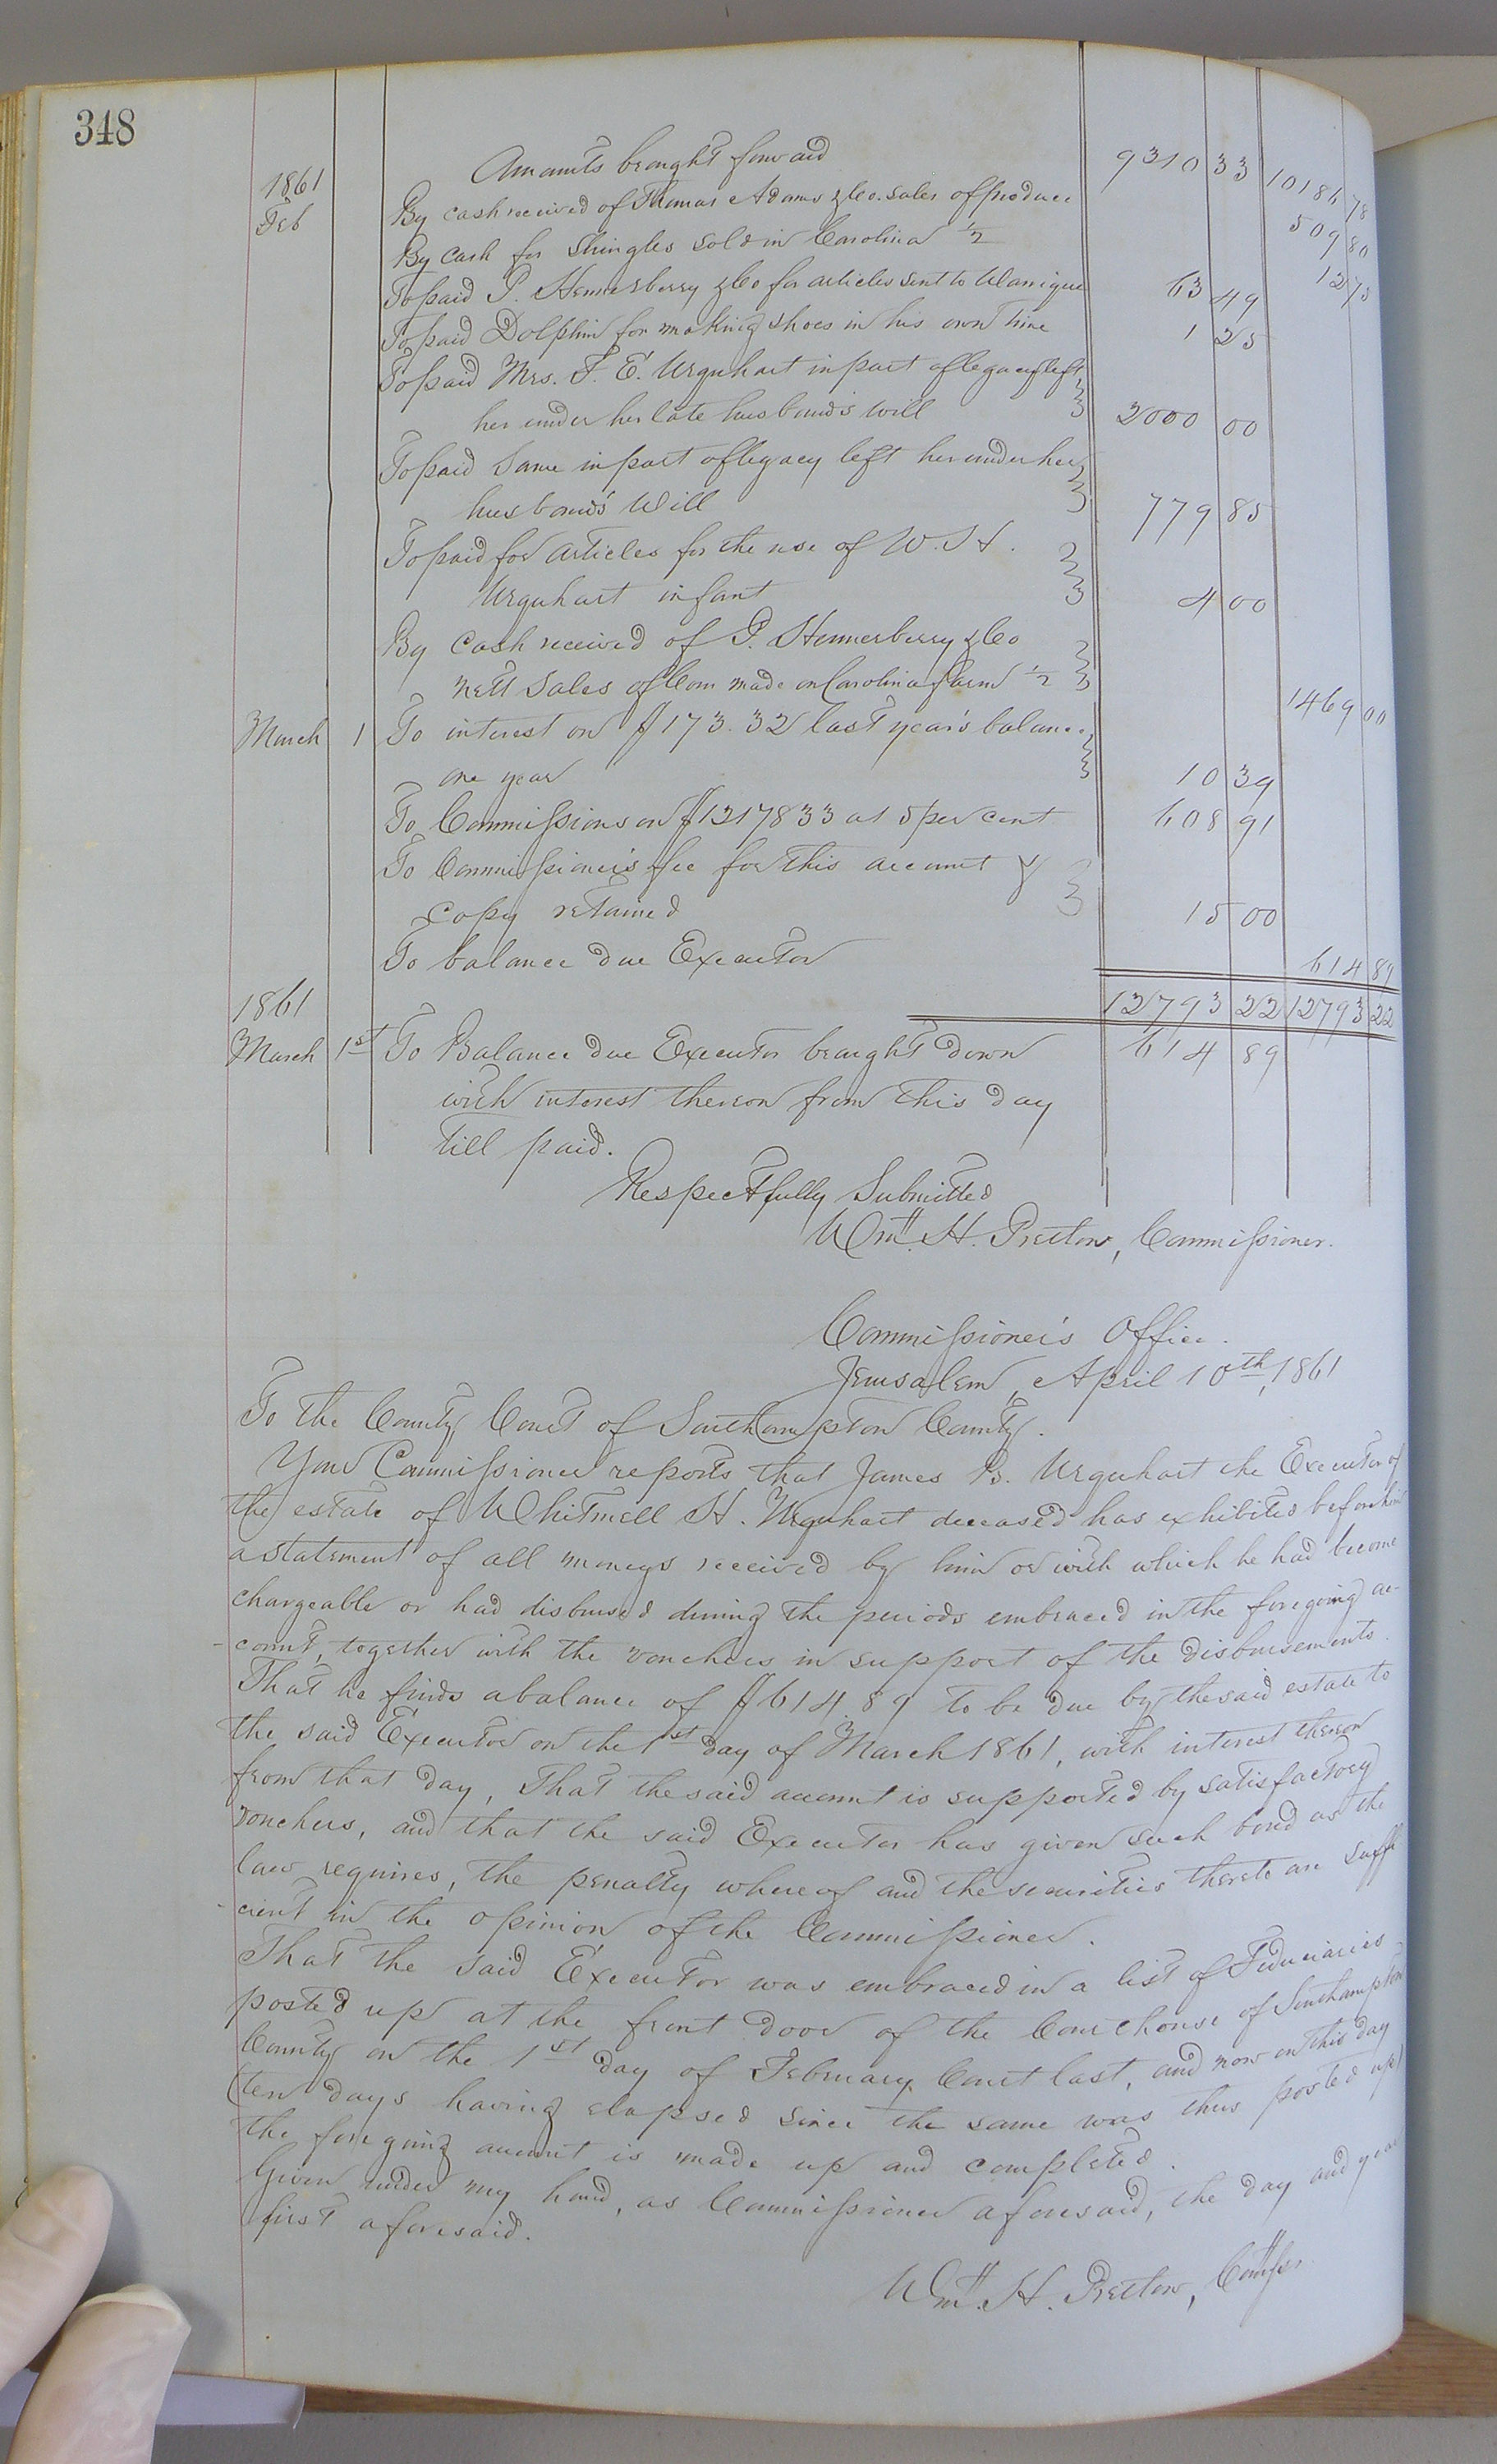 348
Amounts brought forward 9310 33 10186 78
1861
Feb By cash received of Thomas Adams & Co. sales of produce 509 80
By Cash for Shingles sold in Carolina 1/2 12 75
To paid P. Hennerberry & Co for articles sent to Wanique 63 49
To paid Dolphin for making shoes in his own time 1 25
To paid Mrs. F. E. Urquhart in part of legacy left
her under her late husband's will 2000 00
To paid Same in part of legacy left her under her
husband's Will 779 85
To paid for articles for the use of W. H.
Urquhart infant 4 00
By Cash received of P. Hennerberry & Co
nett Sales of Corn made on Carolina farm 1/2 1469 00
March 1 To interest on $173.32 last year's balance
one year 10 39
To Commissions on $12178 33 at 5 per cent 608 91
To Commissioner's fee for this account &
copy retained 15 00
To balance due Executor 614 89
12793 22 12793 22
1861
March 1st To Balance due Executor brought down 614 89
with interest thereon from this day
till paid.
Respectfully Submitted
Wm. H. Pretlow, Commissioner.
Commissioner's Office.
Jerusalem, April 10th, 1861
To the County Court of Southampton County.
Your Commissioner reports that James B. Urquhart the Executor of
the estate of Whitmell H. Urquhart deceased has exhibited before him
a statement of all moneys received by him or with which he had become
chargeable or had disbursed during the periods embraced in the foregoing ac-
-count, together with the vouchers in support of the disbursements.
That he finds a balance of $614.89 to be due by the said estate to
the said Executor on the 1st day of March 1861, with interest thereon
from that day, That the said account is supported by satisfactory
vouchers, and that the said Executor has given such bond as the
law requires, the penalty whereof and the securities thereto are suffi
-cient in the opinion of the Commissioner.
That the said Executor was embraced in a list of Fiduciaries
posted up at the front door of the Courthouse of Southampton
County on the 1st day of February Court last, and now on this day
(ten days having elapsed since the same was thus posted up)
the foregoing account is made up and completed.
Given under my hand, as Commissioner aforesaid, the day and year
first aforesaid.
Wm. H. Pretlow, Commr